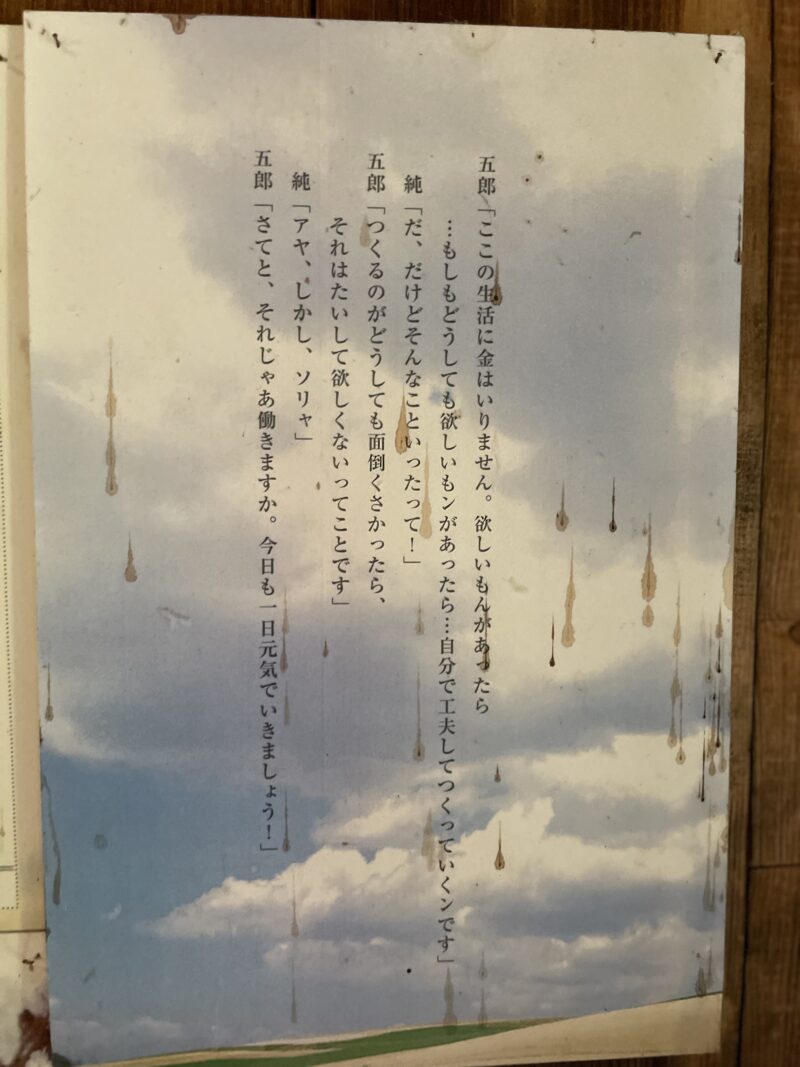 五郎「ここの生活に金はいりません。欲しいもんがあったら
…もしもどうしても欲しいもンがあったら…自分で工夫してつくっていくンです」
純「だ、だけどそんなこといったって！」
五郎「つくるのがどうしても面倒くさかったら、
それはたいして欲しくないってことです」
純「アヤ、しかし、ソリャ」
五郎「さてと、それじゃあ働きますか。今日も一日元気でいきましょう！」